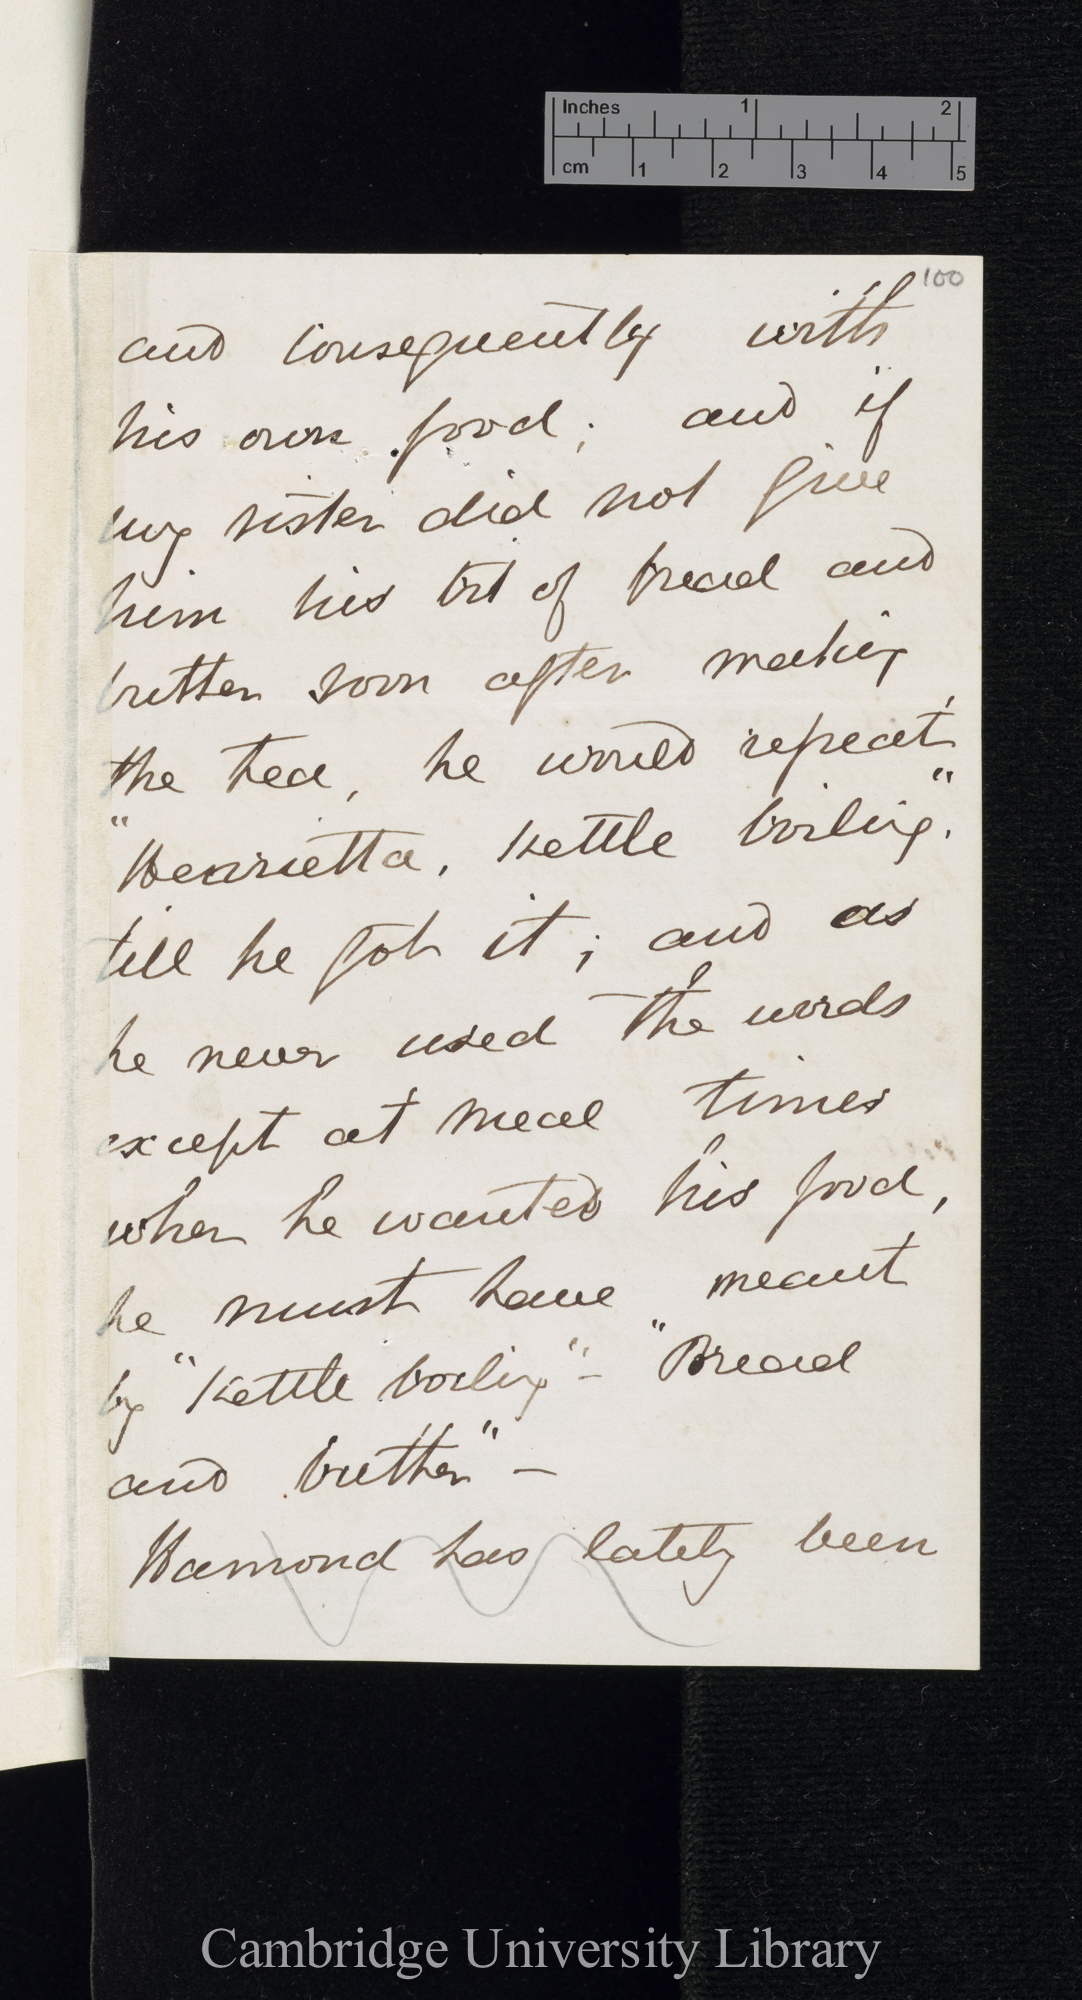 Inches 1 2
cm 1 2 3 4 5
100
and consequently with
his own food; and if
my sister did not give
him his bit of bread and
butter soon after making
the tea, he would repeat,
"Henrietta, Kettle boiling."
till he got it; and as
he never used the words
except at meal times
when he wanted his food,
he must have meant
by "Kettle boiling" - "Bread
and butter" -
Hamond has lately been
Cambridge University Library